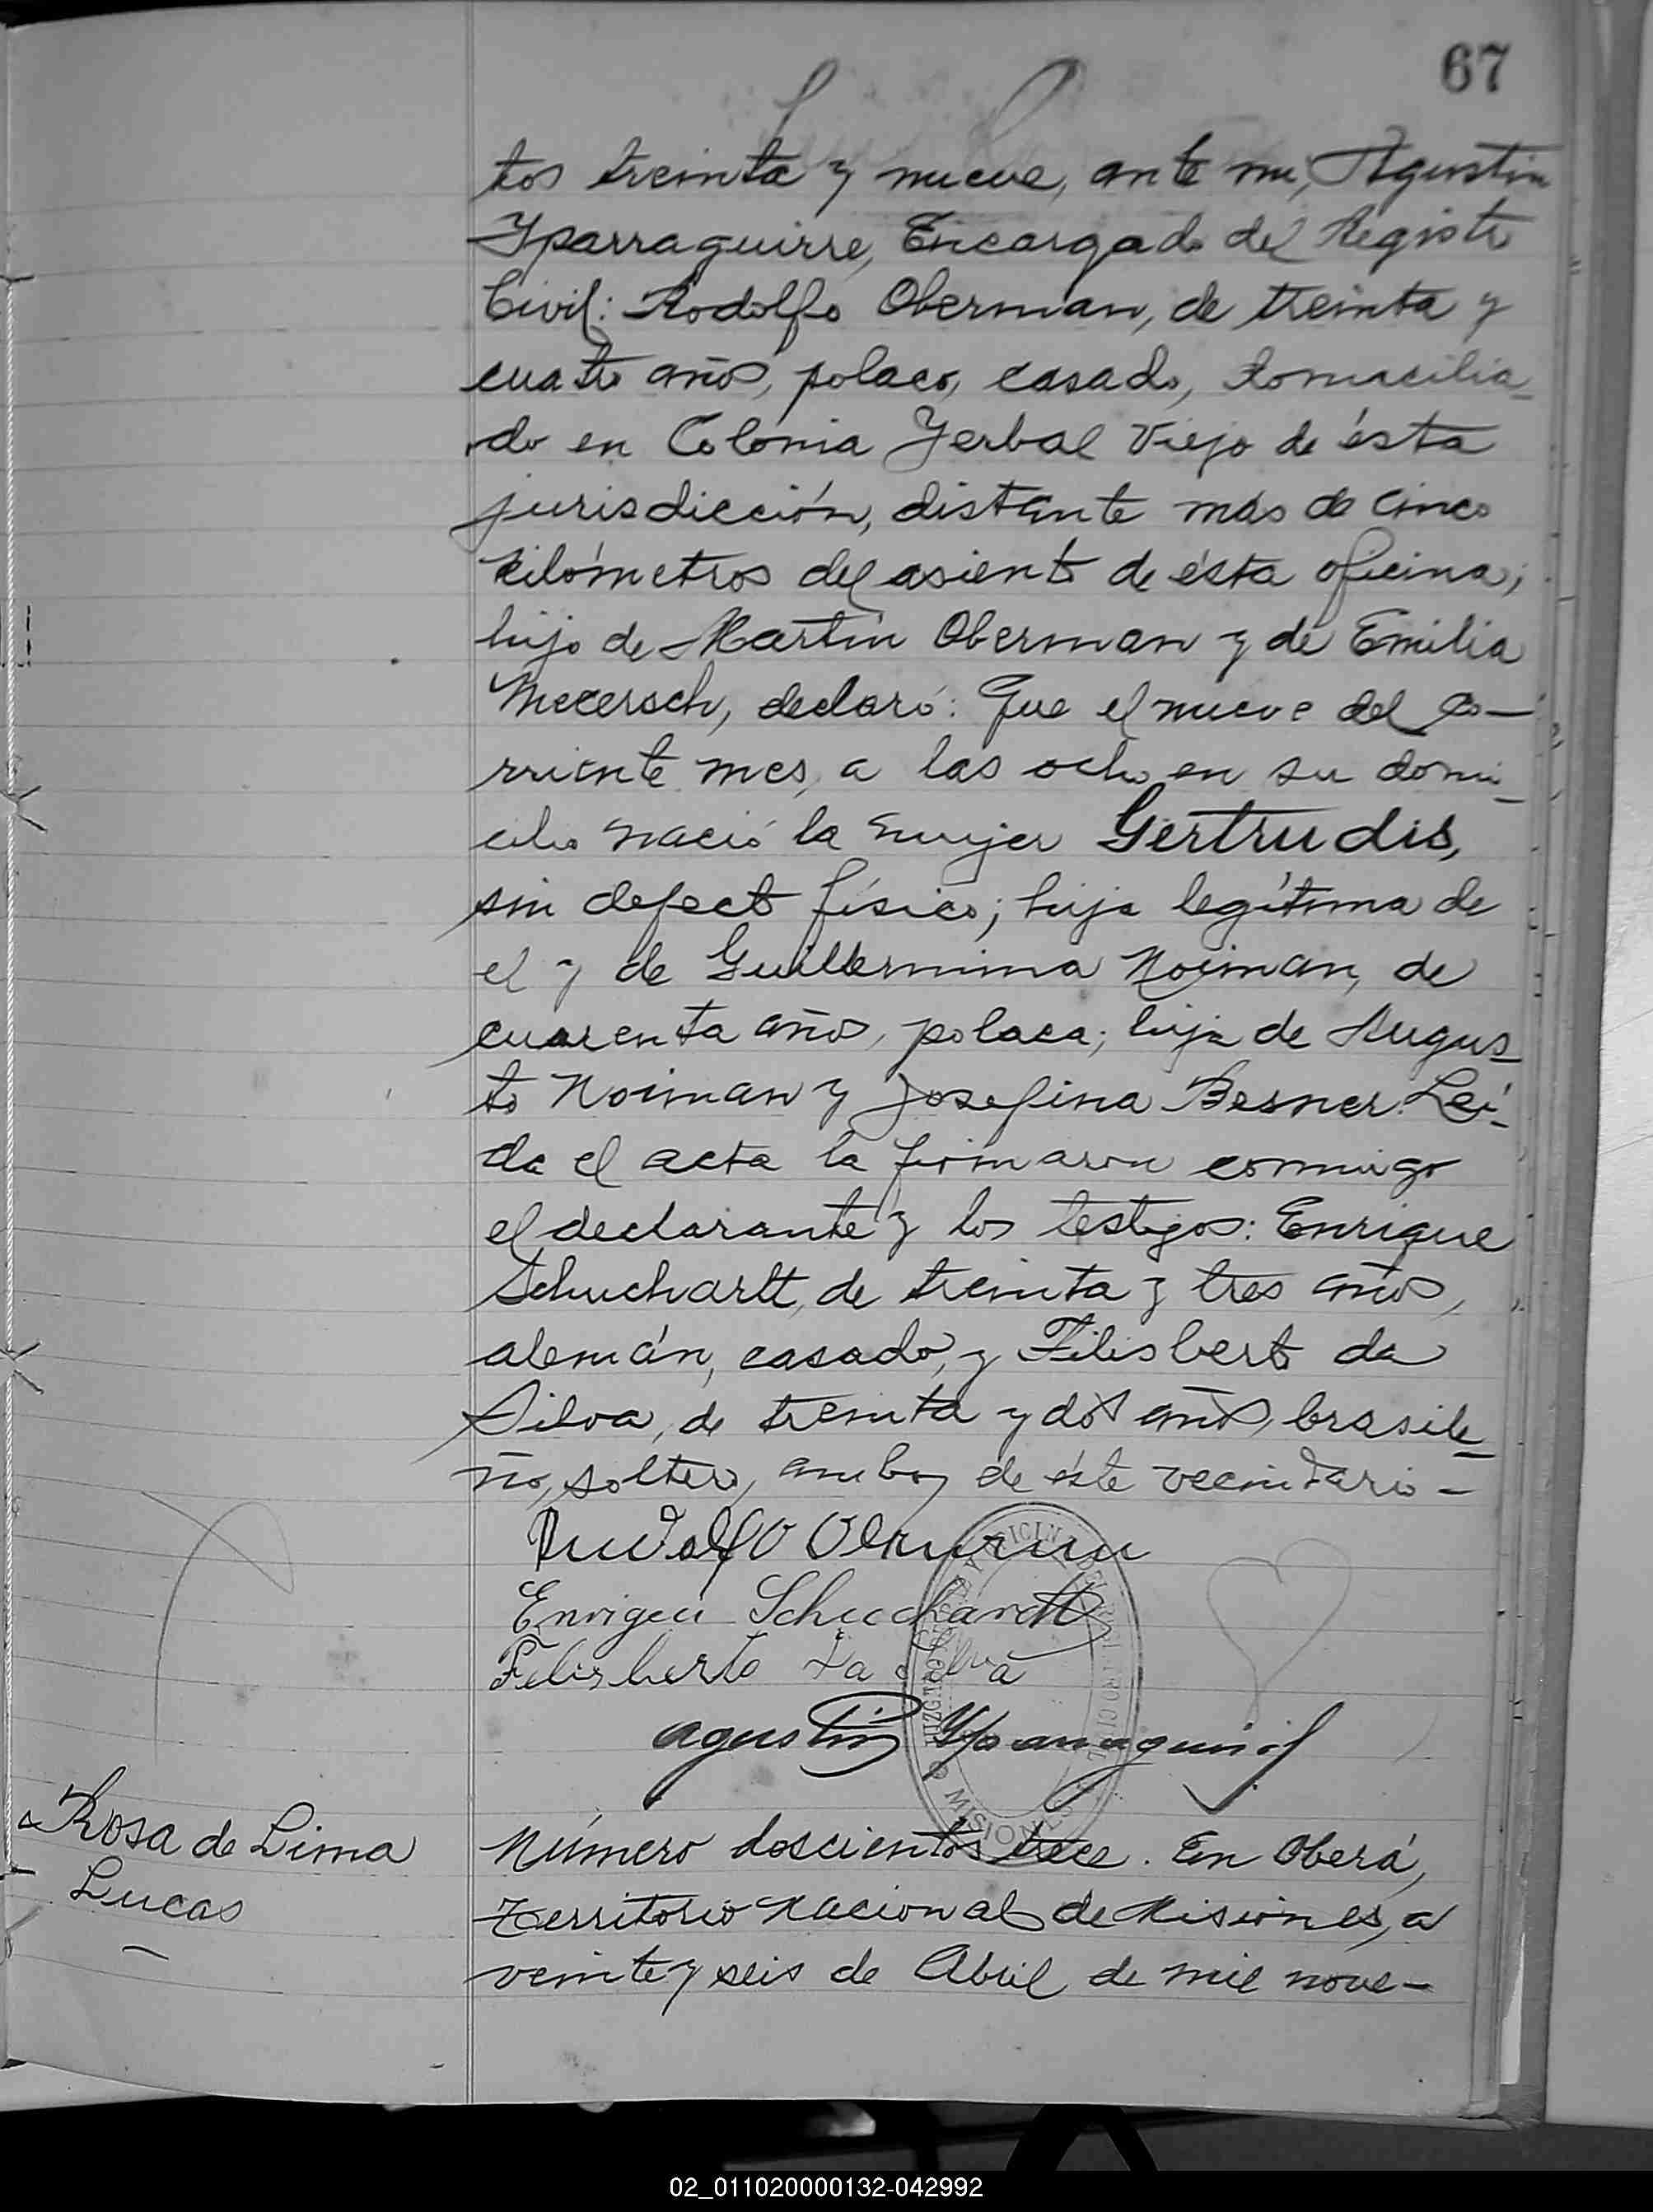 67
tos treinta y nueve, ante mi, Agustin
Yparraguirre, Encargado del Registro
Civil: Rodolfo Oberman, de treinta y
cuatro años, polaco, casado, domicilia-
do en Colonia Yerbal Viejo de ésta
jurisdicción, distante más de cinco
kilómetros del asiento de ésta oficina;
hijo de Martin Oberman y de Emilia
declaró: Que el nueve del co-
rriente mes, a las ocho, en su domi-
cilio nació la mujer Gertrudis,
sin defecto físico; hija legítima de
el y de Guillermina Noiman, de
cuarenta años, polaca; hija de Augus-
to Noiman y Josefina Besner. Leí-
da el acta la firmaron conmigo
el declarante y los testigos: Enrique
Schuchartt, de treinta y tres años,
alemán, casado, y Filisberto da
Silva, de treinta y dos años, brasile-
ño, soltero, ambos de éste vecindario -
Rudolfo
Schuchardt
Felisberto da Silva
Agustin Yparraguirre
MISIONES
Rosa de Lima
Lucas
Número doscientos trece. En Oberá,
Territorio Nacional de Misiones, a
veinte y seis de Abril de mil nove-
02_011020000132-042992